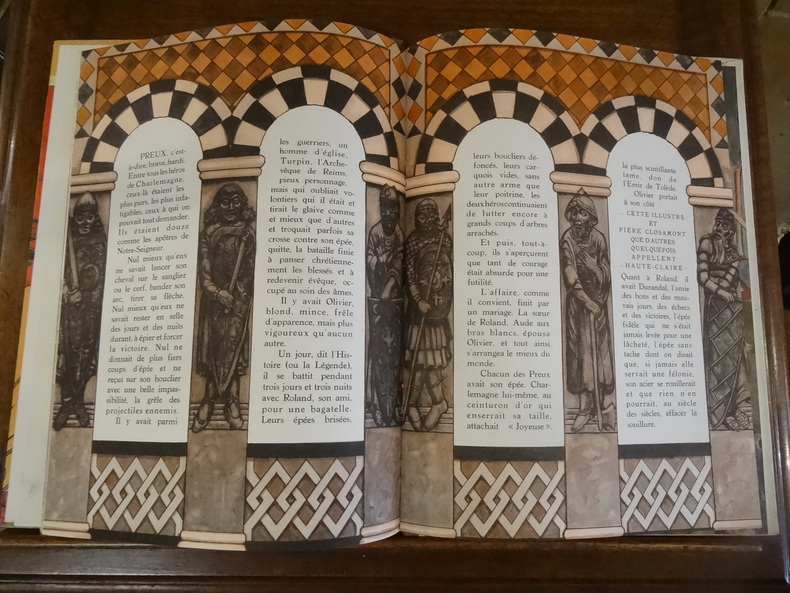 PREUX, c'est-
à-dire, brave, hardi.
Entre tous les héros
de Charlemagne,
ceux-là étaient les
plus purs, les plus infa-
tigables, ceux à qui on
pouvait tout demander.
Ils étaient douze
comme les apôtres de
Notre-Seigneur.
Nul mieux qu'eux
ne savait lancer son
cheval sur le sanglier
ou le cerf, bander son
arc, tirer sa flèche.
Nul mieux qu'eux ne
savait rester en selle
des jours et des nuits
durant, à épier et forcer
la victoire. Nul ne
donnait de plus fiers
coups d'épée et ne
reçut sur son bouclier
avec une belle impas-
sibilité, la grêle des
projectiles ennemis.
Il y avait parmi
les guerriers, un
homme d'église,
Turpin, l'Arche-
vêque de Reims,
pieux personnage,
mais qui oubliait vo-
lontiers qu'il était et
tirait le glaive comme
et mieux que d'autres
et troquait parfois sa
crosse contre son épée,
quitte, la bataille finie
à panser chrétienne-
ment les blessés et à
redevenir évêque, oc-
cupé au soin des âmes.
Il y avait Olivier,
blond, mince, frêle
d'apparence, mais plus
vigoureux qu'aucun
autre.
Un jour, dit l'His-
toire (ou la Légende),
il se battit pendant
trois jours et trois nuits
avec Roland, son ami,
pour une bagatelle.
Leurs épées brisées,
leurs boucliers dé-
foncés, leurs car-
quois vides, sans
autre arme que
leur poitrine, les
deux héros continuient
de lutter encore à
grands coups d'arbres
arrachés.
Et puis, tout-à-
coup, ils s'aperçurent
que tant de courage
était absurde pour une
futilité.
L'affaire, comme
il convient, finit par
un mariage. La sœur
de Roland, Aude aux
bras blancs, épousa
Olivier, et tout ainsi
s'arrangea le mieux du
monde.
Chacun des Preux
avait son épée. Char-
lemagne lui-même, au
ceinturon d'or qui
enserrait sa taille,
attachait « Joyeuse ».
la plus scintillante
lame, don de
l'Emir de Tolède.
Olivier portait
à son côté
- CETTE ILLUSTRE
ET
FIÈRE CLOSAMONT
QUE D'AUTRES
QUELQUEFOIS
APPELLENT
- HAUTE-CLAIRE -
Quant à Roland, il
avait Durandal, l'amie
des bons et des mau-
vais jours, des échecs
et des victoires, l'épée
fidèle qui ne s'était
jamais levée pour une
lâcheté, l'épée sans
tache dont on disait
que, si jamais elle
servait une félonie,
son acier se rouillerait
et que rien n'en
pourrait, au siècle
des siècles, effacer la
souillure.